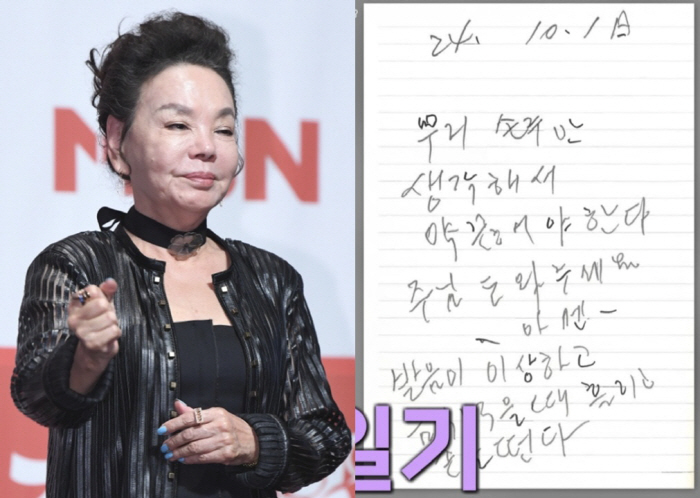 MBN
24. 10. 1日
우리 손주만
생각해서
약 끊어야 한다
주님 도와주세요
아멘-
발음이 이상하고
먹을 때
떤다
일기